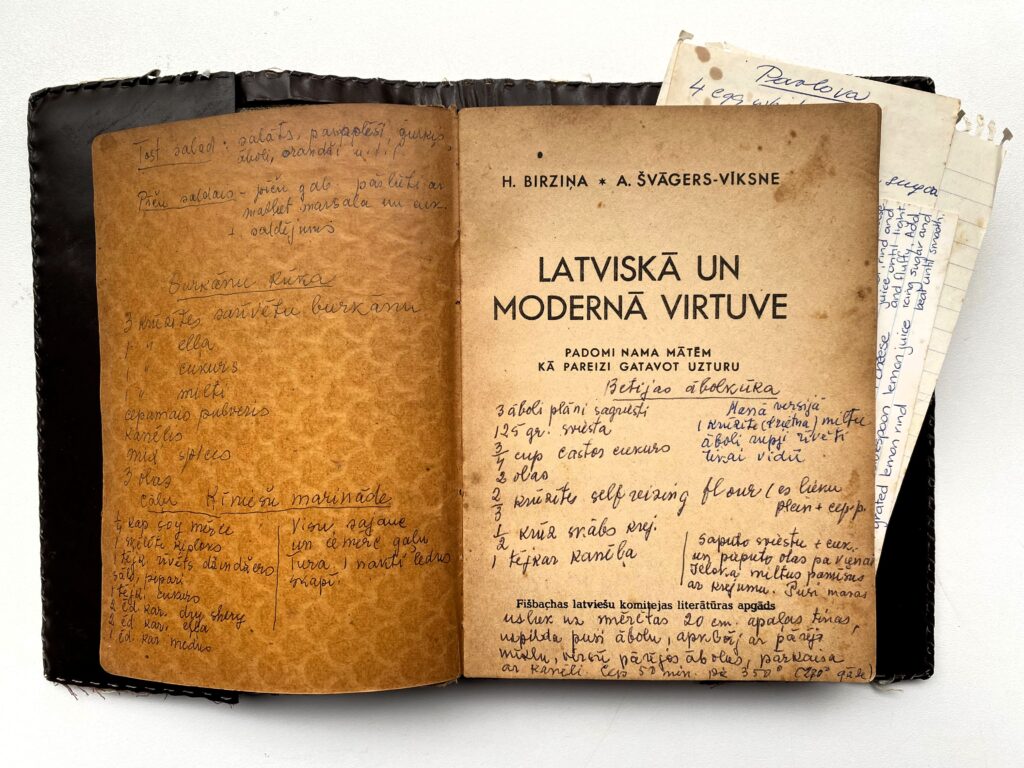 Tost salad - salāts, paraplēsti, gurķis,
āboli, orandži u.t.t.
Pīču saldais - pīču gab. pārlieti ar
marsala un cuk.
+ saldējums
Burkānu kūka
3 krūzītes sarīvētu burkānu
1 " eļļa
1 " cukurs
1 " milti
cepamais pulveris
kanēlis
mix spices
3 olas
Ķīniešu marināde
kap soy mērce
1 ķiploks
1 tējk rīvēts
sāls, pipari
1 tējk cukurs
2 ēd kar. dry shery
2 ēd. kar. eļļa
1 ēd. kar. medus
Visu sajauc
un iemērc gaļu
tura 1 nakti ledus
skapī
H. BIRZIŅA * A. ŠVĀGERS-VĪKSNE
LATVISKĀ UN
MODERNĀ VIRTUVE
PADOMI NAMA MĀTĒM
KĀ PAREIZI GATAVOT UZTURU
Betijas ābolkūka
3 āboli plāni sagriesti
125 gr. sviesta
3/4 cup castos cukurs
2 olas
2/3 krūzītes self reizing flour (es lieku
plein + cep.p.
1/2 krūz skābs krej.
1 tējkar kanēļa
Manā versijā
1 krūzīte (brietna) miltu
āboli rupji rīvēti
tikai vidū
Saputo sviestu + cuk.
un paputo olas pa vienai
Ieloka miltus pamīšus
ar krējumu. Pusi masas
Fišbachas latviešu komitejas literātūras apgāds
uzliek uz smērētas 20 cm. apaļas
uzpilda pusi ābolu, apklāj ar pārējo
mīklu, virsū pārējos ābolus, pārkaisa
ar kanēli. Cep 50 min. pie 350°
Pavlova
4 egg
sugar
juice, rind and
and fluffy. Add
icing sugar and
beat until smooth.
cheese
lemon juice
grated lemon rind